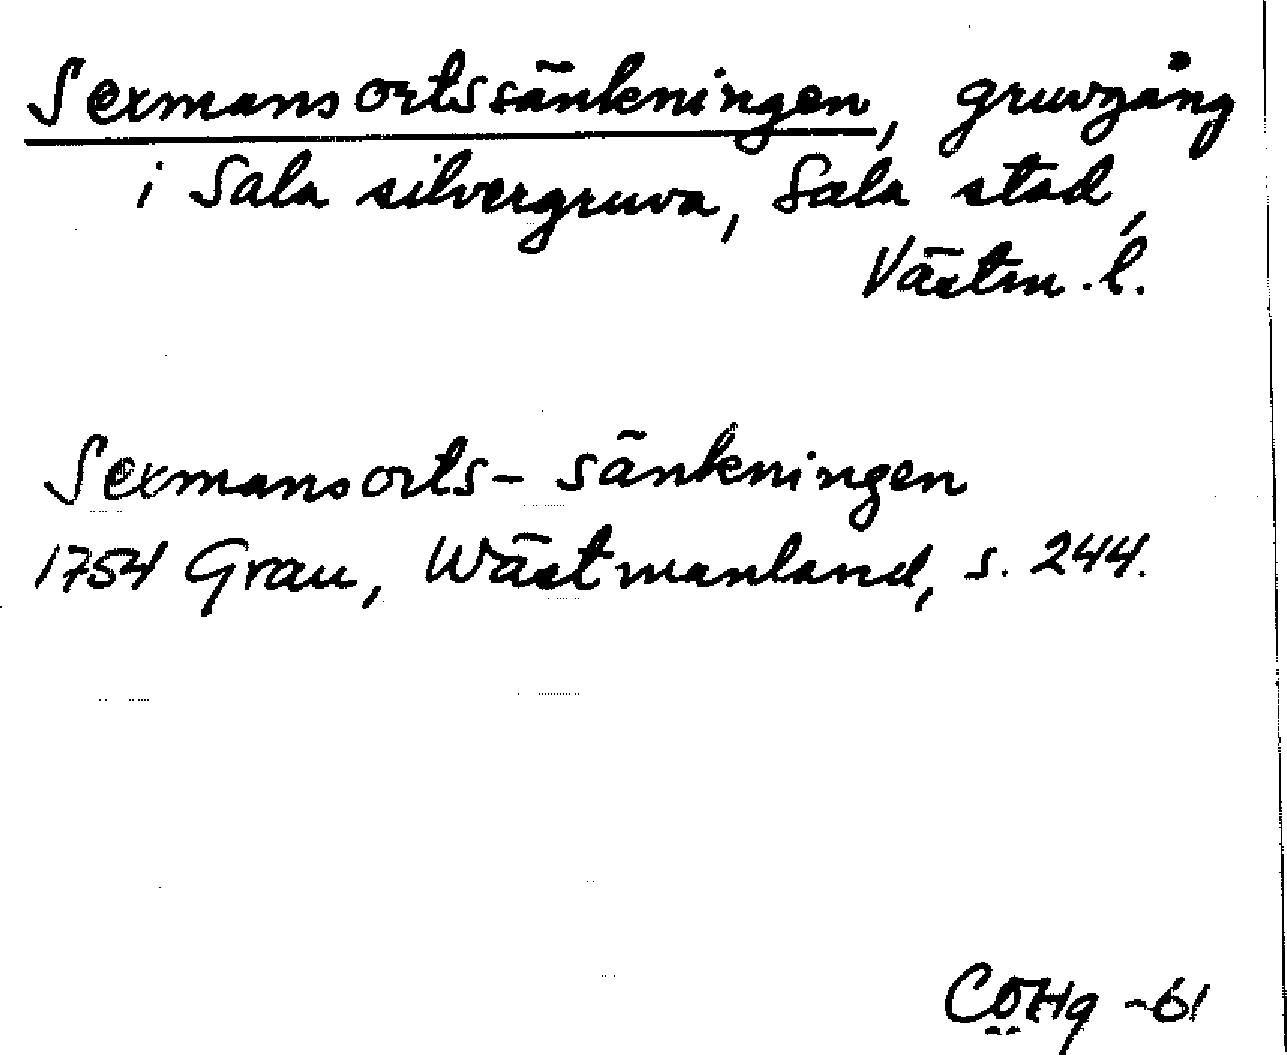 Sexmansortssänkningen, gruvgång
i Sala silvergruva, Sala stad,
Västm. l.
Sexmansorts- sänkningen
1754 Grau, Wästmanland, s. 244.
CÖHg -61